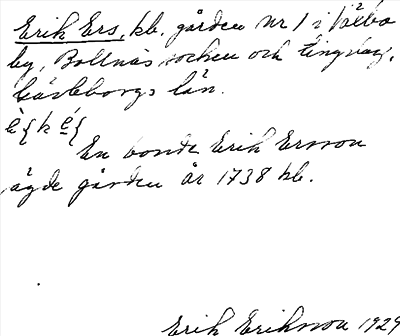 Erik Ers, kb. gården nr 1 i Välbo
by, Bollnäs socken och tingslag,
Gävleborgs län.
En bonde Erik Ersson
ägde gården år 1738 kb.
Erik Eriksson 1929